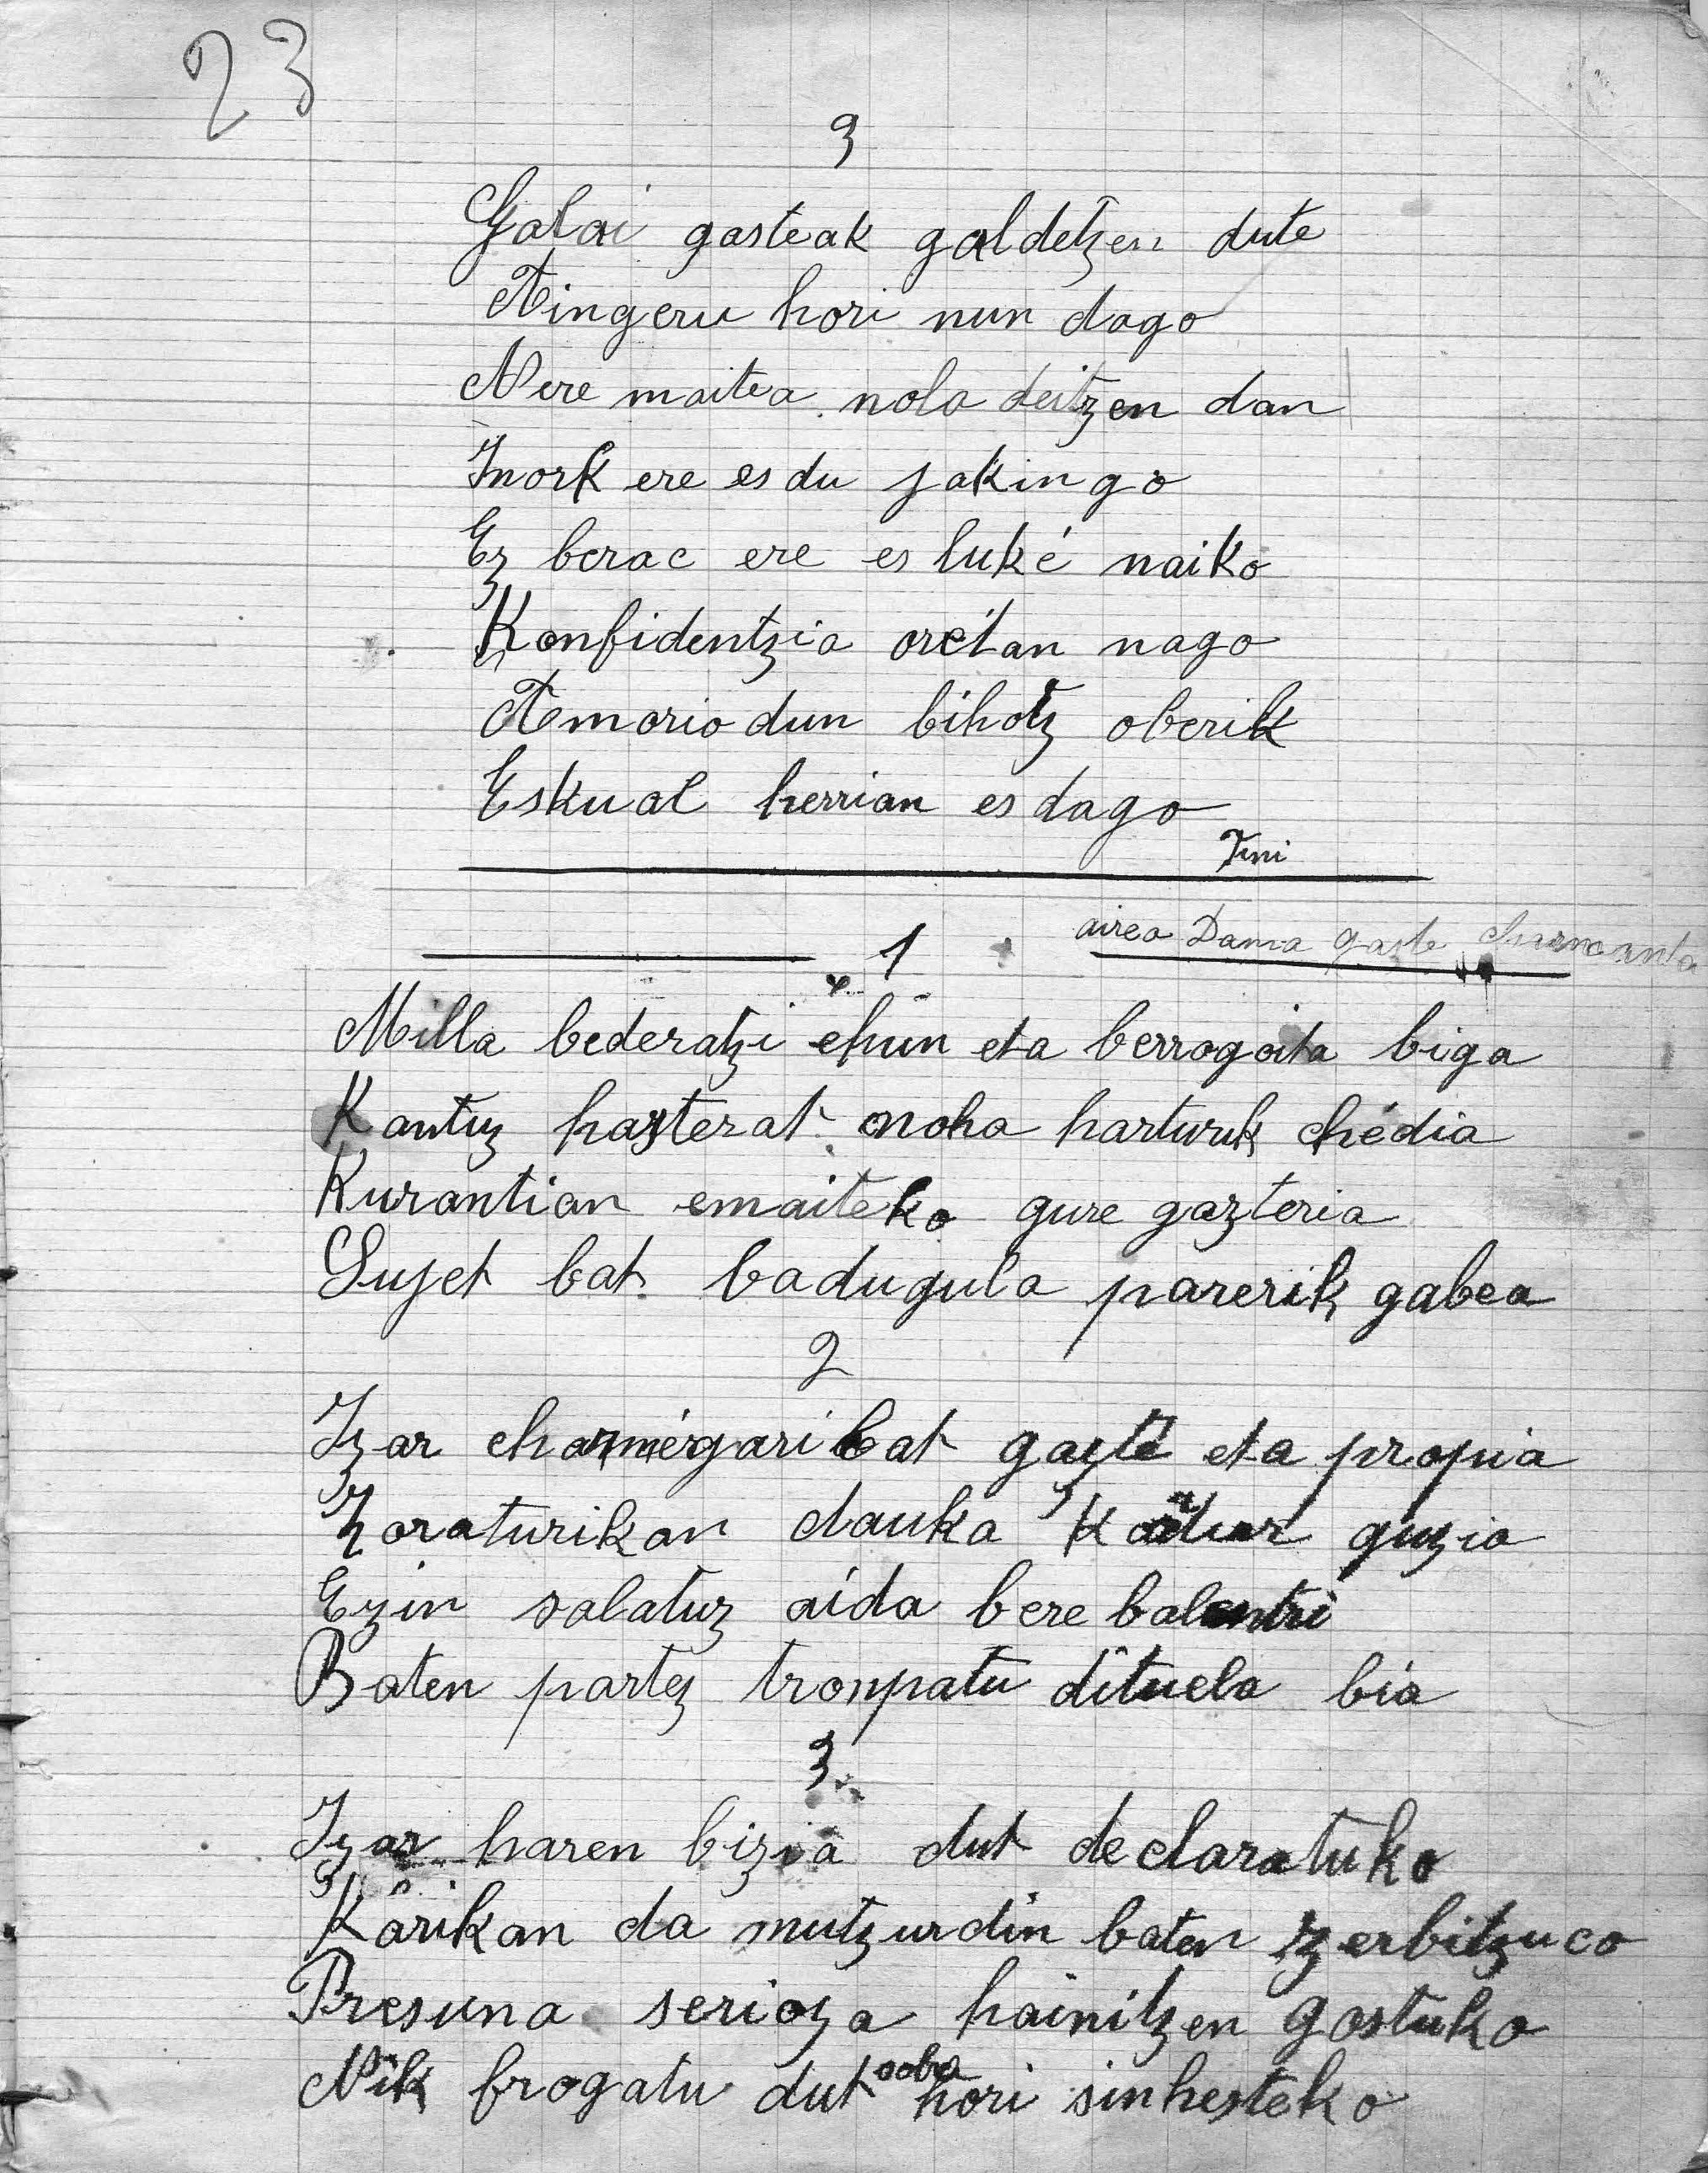 23
3
Galai gasteak galdetzen dute
Aingeru hori nun dago
Nere maitea nola deitzen dan
Inork ere es du jakingo
Ez berac ere es luké naiko
Konfidentzia orétan nago
Amorio dun bihotz oberik
Eskual herrian es dago
Fini
1
airea Dama gaste charmanta
Milla bederatzi ehun eta berrogoita biga
Kantuz hasterat noha harturik chédia
Kurantian emaiteko gure gazteria
Sujet bat badugula parerik gabea
2
Izar charmégari bat gazté eta propia
Zoraturikan dauka guzia
Ezin salatuz aida bere
Baten partez tronpatu dituela bia
3
Izar haren bizia dut declaratuko
Karikan da mutzurdin baten zerbitzuco
Presuna serioza hainitzen gostuko
Nik frogatu dut hori sinhesteko